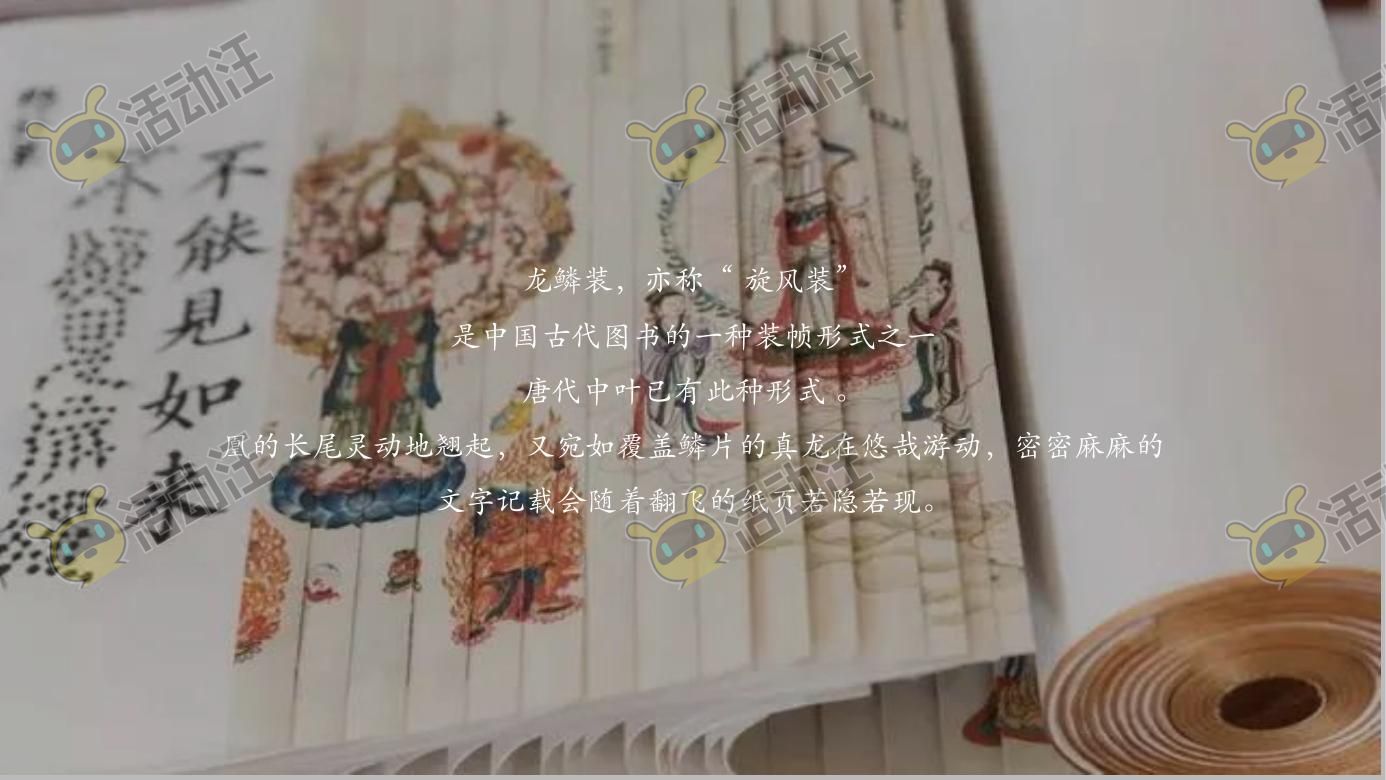 不能見如来
龙鳞装，亦称“ 旋风装”
是中国古代图书的一种装帧形式之一
唐代中叶已有此种形式 。
凰的长尾灵动地翘起，又宛如覆盖鳞片的真龙在悠哉游动，密密麻麻的
文字记载会随着翻飞的纸页若隐若现。
活动汪
活动汪
活动汪
活动汪
活动汪
活动汪